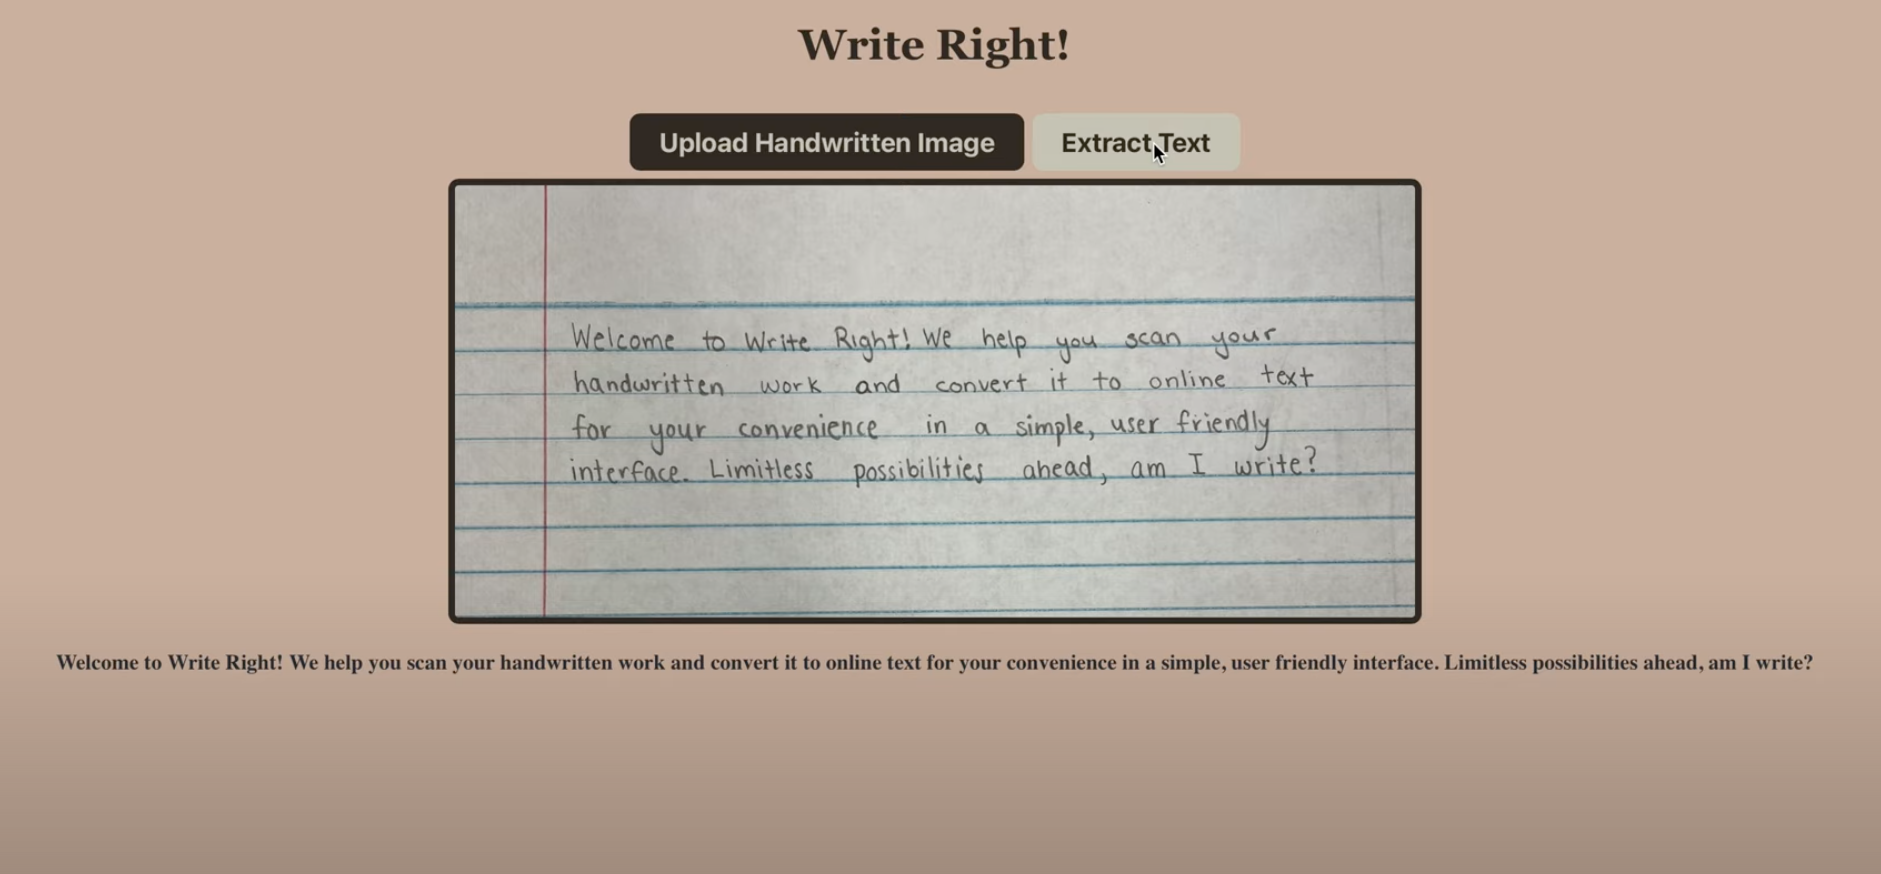 Write Right!
Upload Handwritten Image
Extract Text
Welcome to Write Right! We help you scan your
handwritten work and convert it to online text
for your convenience in a simple, user friendly
interface. Limitless possibilities ahead, am I write?
Welcome to Write Right! We help you scan your handwritten work and convert it to online text for your convenience in a simple, user friendly interface. Limitless possibilities ahead, am I write?